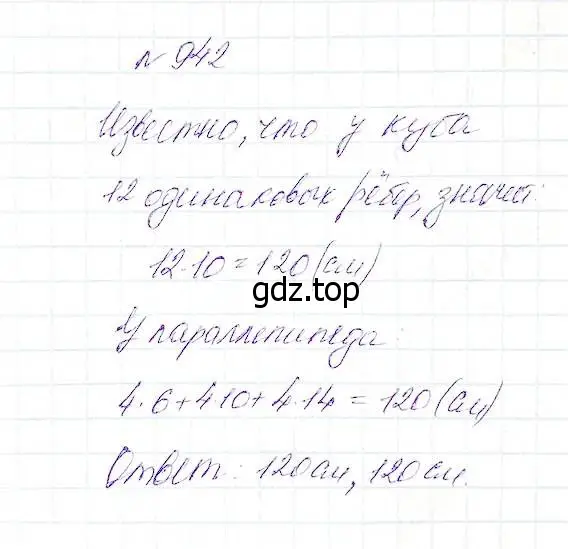 № 942
Известно, что у куба
12 одинаковых рёбер, значит:
12·10=120(см)
gdz.top
У параллепипеда:
4·6+4·10+4·14=120(см)
Ответ: 120см, 120см.